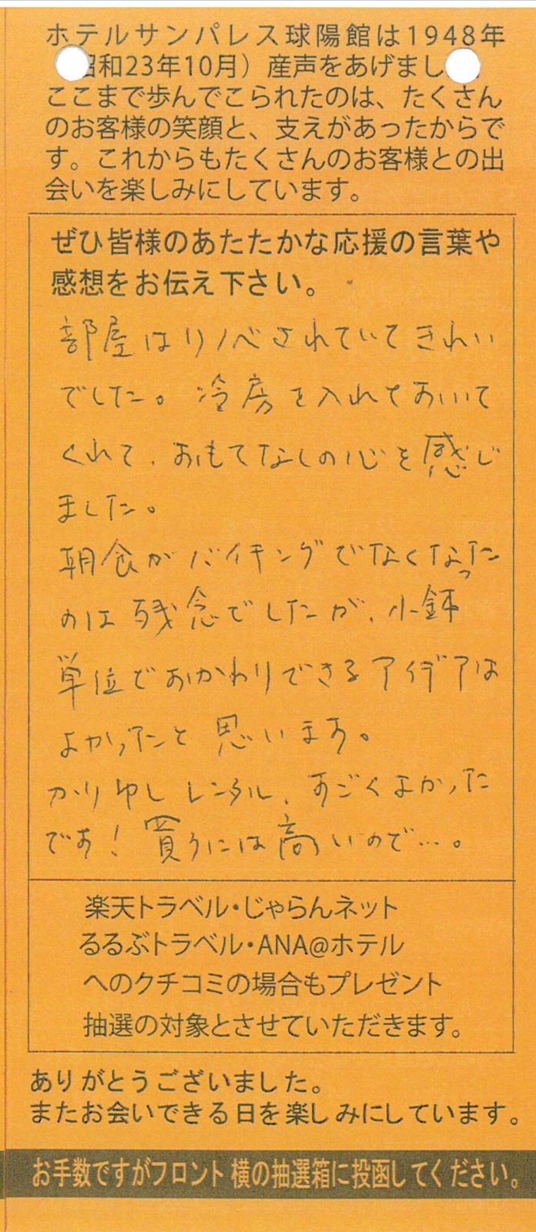 ホテルサンパレス球陽館は1948年
昭和23年10月）産声をあげまし
ここまで歩んでこられたのは、たくさん
のお客様の笑顔と、支えがあったからで
す。これからもたくさんのお客様との出
会いを楽しみにしています。
ぜひ皆様のあたたかな応援の言葉や
感想をお伝え下さい。
部屋はリノベされていてきれい
でした。冷房を入れておいて
くれて、おもてなしの心を感じ
ました。
朝食がバイキングでなくなった
のは残念でしたが、小鉢
単位でおかわりできるアイデアは
よかったと思います。
かりゆしレンタル、すごくよかった
です！買うには高いので…。
楽天トラベル・じゃらんネット
るるぶトラベル・ANA@ホテル
へのクチコミの場合もプレゼント
抽選の対象とさせていただきます。
ありがとうございました。
またお会いできる日を楽しみにしています。
お手数ですがフロント横の抽選箱に投函してください。